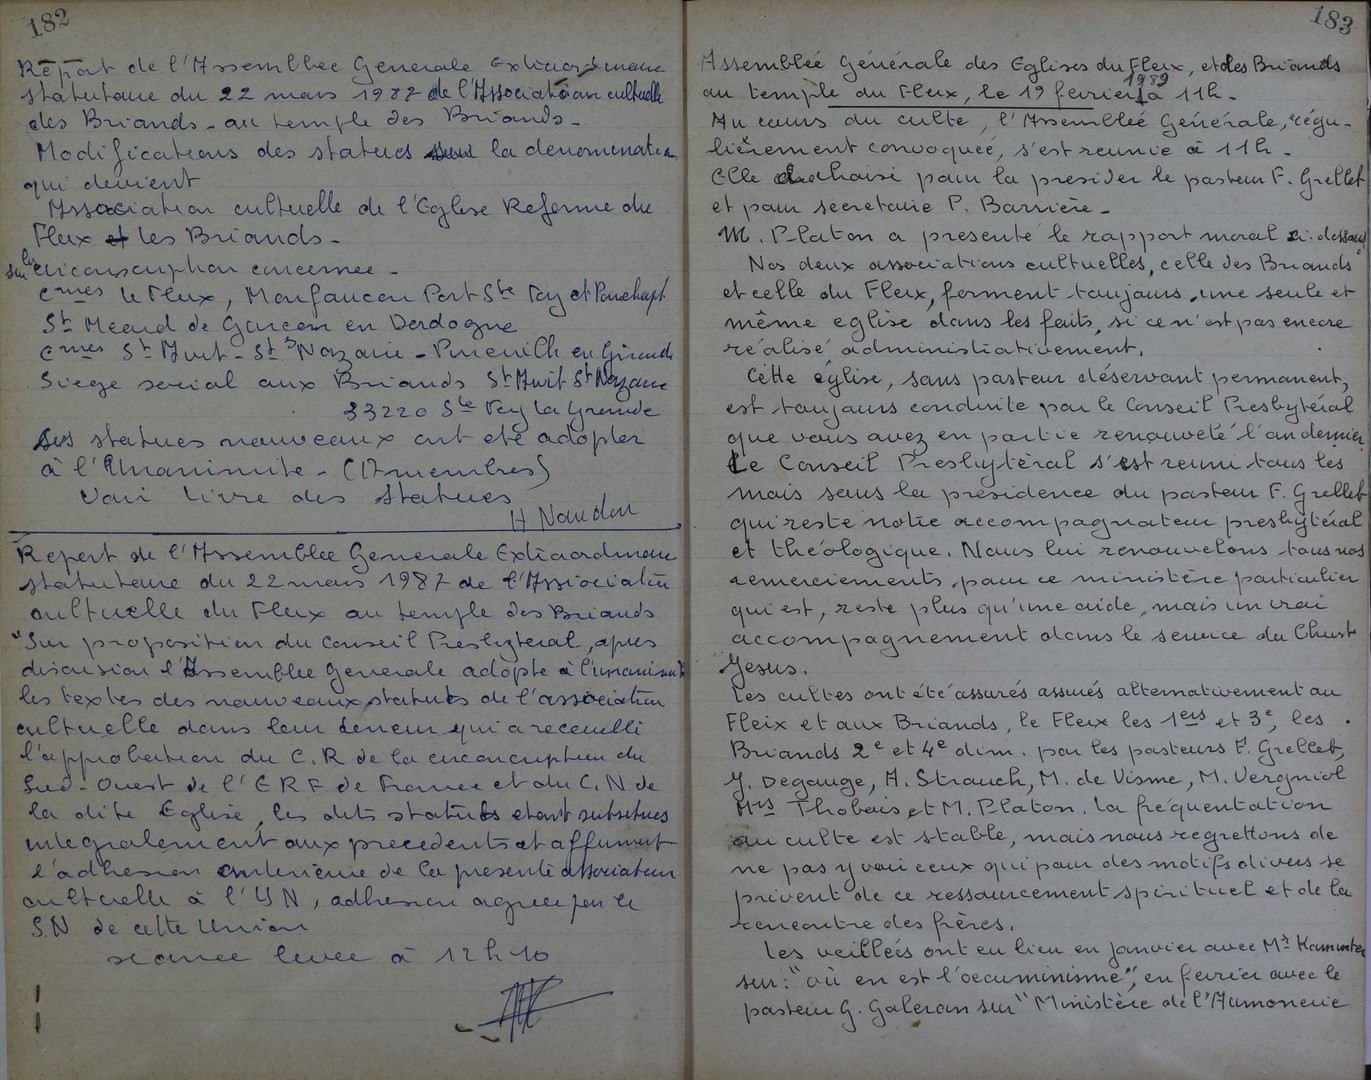 182
Report de l'Assemblee Generale Extraordinaire
statutaire du 22 mars 1987 de l'Association cultuelle
des Briands - au temple des Briands -
Modifications des statues sur la denomination
qui devient
Association cultuelle de l'Eglise Reforme du
Fleix et les Briands -
sur les circonscription concernee -
Cmes le Fleix, Monfaucon Port Ste Foy et Ponchapt
St Meard de Gurcon en Dordogne
cmes St Avit - St Nazaire - Pineuilh en Gironde
Siege social aux Briands St Avit St Nazaire
33220 Ste Foy la Grande
Les statues nouveaux ont eté adopter
à l'Unanimite - (17 membres)
Voir livre des Statues
H Naudon
Report de l'Assemblee Generale Extraordinaire
statutaire du 22 mars 1987 de l'Association
cultuelle du Fleix au temple des Briands
"Sur proposition du conseil Presbyteral, apres
discusion l'Assemblee Generale adopte à l'unanimité
les textes des nouveaux statuts de l'association
cultuelle dans leur teneur qui a recueilli
l'approbation du C.R de la circonscription du
Sud-Ouest de l'ERF de France et du C.N de
la dite Eglise, les dits statuts etant substitues
integralement aux precedents et affirment
l'adhesion anterieure de la presente association
cultuelle à l'UN, adhesion agree par le
S.N de cette Union
seance levee à 12h10
183
Assemblée Générale des Eglises du Fleix, et des Briands
au temple du Fleix, le 19 fevrier 1989 à 11h -
Au cours du culte, l'Assemblée Générale, régu-
lièrement convoquée, s'est reunie à 11h -
Elle a choisi pour la presider le pasteur F. Grellet
et pour secretaire P. Barrière -
M. Platon a presenté le rapport moral ci-dessous
"Nos deux associations cultuelles, celle des Briands
et celle du Fleix, forment toujours, une seule et
même eglise dans les faits, si ce n'est pas encore
réalisé administrativement.
Cette église, sans pasteur désservant permanent,
est toujours conduite par le Conseil Presbytéral
que vous avez en partie renouvelé l'an dernier
Le Conseil Presbytèral s'est reuni tous les
mois sous la présidence du pasteur F. Grellet
qui reste notre accompagnateur presbytéral
et théologique. Nous lui renouvelons tous nos
remerciements, pour ce ministère particulier
qui est, reste plus qu'une aide, mais un vrai
accompagnement dans le service du Christ
Jesus.
Les cultes ont été assurés assurés alternativement au
Fleix et aux Briands, le Fleix les 1ers et 3e, les
Briands 2e et 4e dim. par les pasteurs F. Grellet,
J. Degauge, A. Strauch, M. de Visme, M. Vergniol
Mrs Thobois et M. Platon. La fréquentation
au culte est stable, mais nous regrettons de
ne pas y voir ceux qui pour des motifs divers se
privent de ce ressourcement spirituel et de la
rencontre des frères.
Les veillées ont eu lieu en janvier avec Mr
sur: "où en est l'oecuminisme", en fevrier avec le
pasteur G. Galeron sur "Ministère de l'Aumonerie